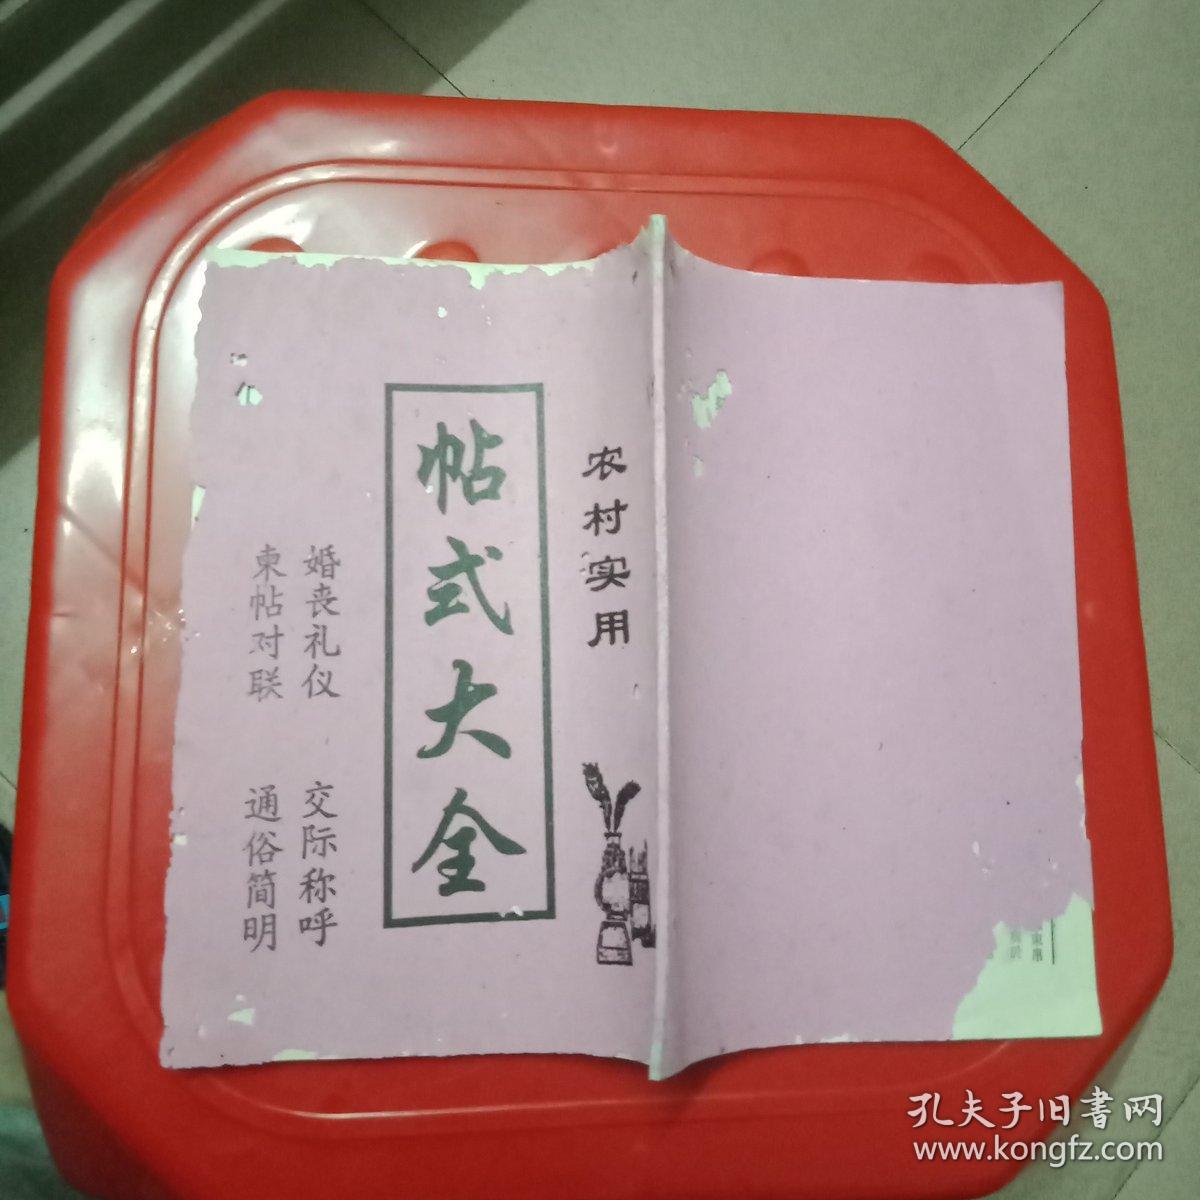 农村实用
帖式大全
婚丧礼仪 交际称呼
柬帖对联 通俗简明
孔夫子旧書网
www.kongfz.com